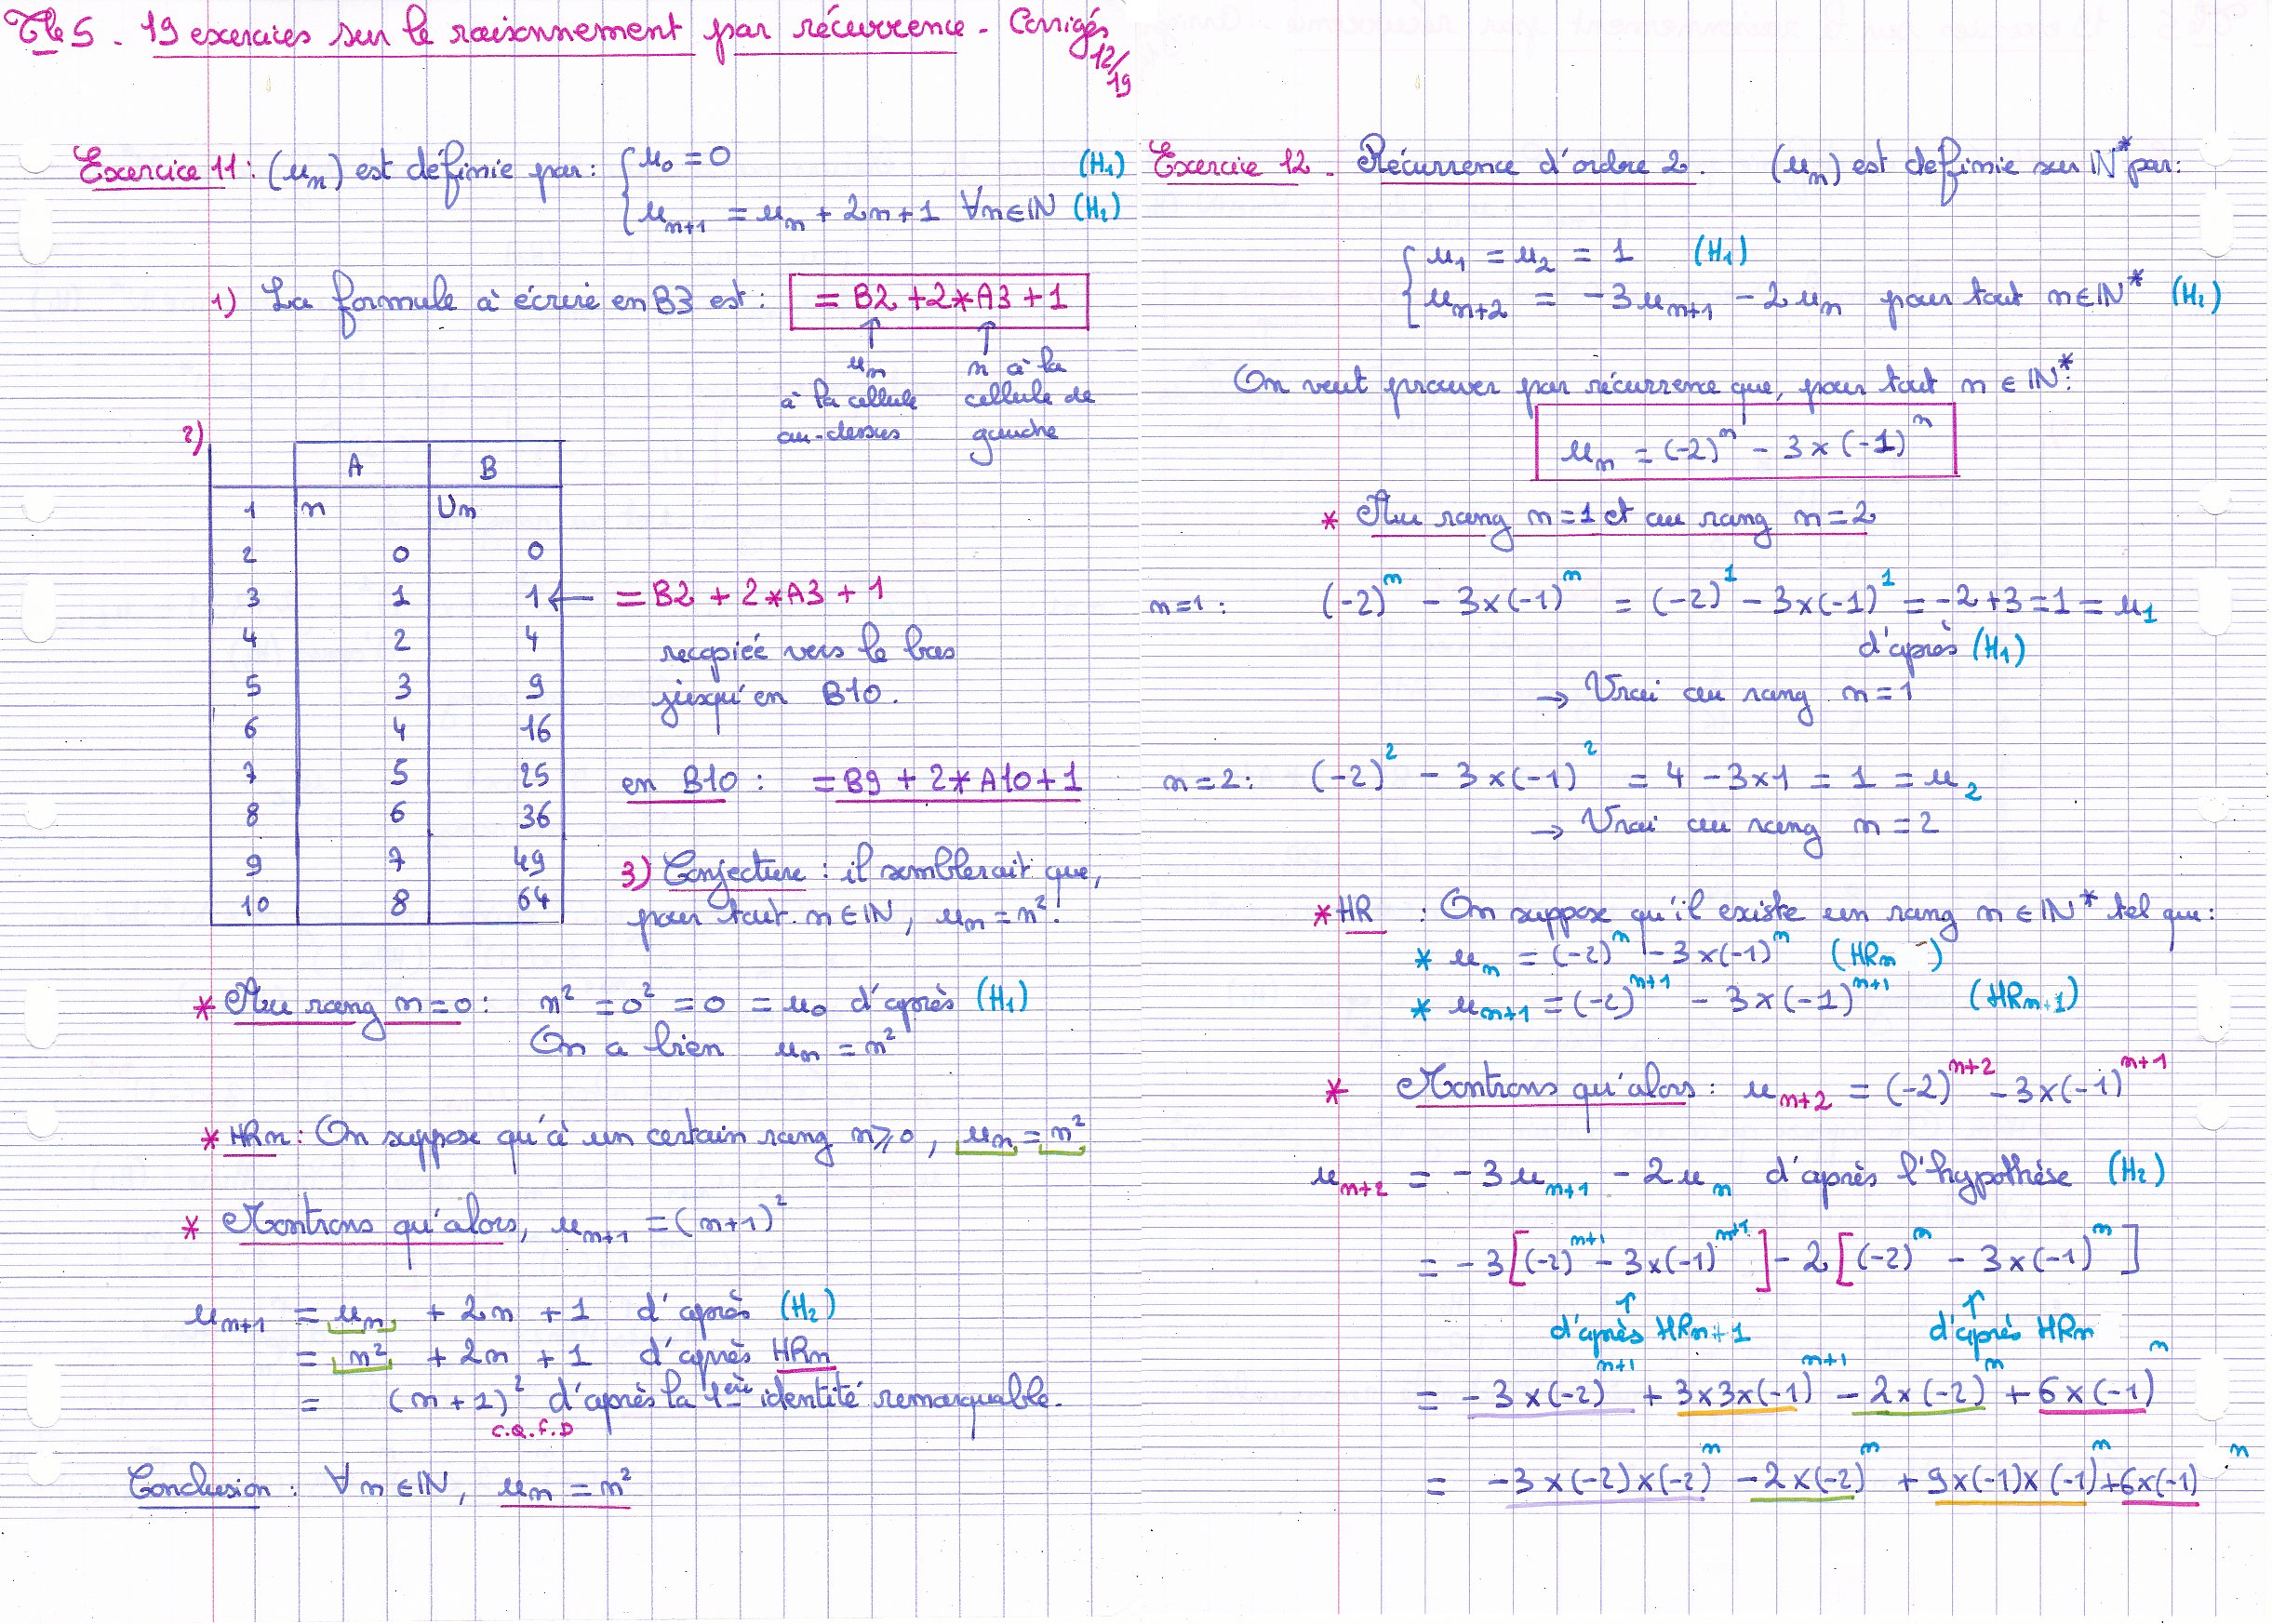 Tle S. 19 exercices sur le raisonnement par récurrence - Corrigés
12/19
Exercice 11 : (un) est définie par : { u0 = 0 (H1)
un+1 = un + 2n + 1 ∀n∈IN (H2)
1) La formule à écrire en B3 est : = B2 + 2*A3 + 1
↑ ↑
un n à la
à la cellule cellule de
au-dessus gauche
2)
A B
1 n Un
2 0 0
3 1 1 ← = B2 + 2*A3 + 1
4 2 4 recopiée vers le bas
5 3 9 jusqu'en B10.
6 4 16
7 5 25 en B10 : = B9 + 2*A10+1
8 6 36
9 7 49 3) Conjecture : il semblerait que,
10 8 64 pour tout n ∈ IN, un = n².
* Au rang n=0 : n² = 0² = 0 = u0 d'après (H1)
On a bien un = n²
* HRn : On suppose qu'à un certain rang n⩾0, un = n²
* Montrons qu'alors, un+1 = (n+1)²
un+1 = un + 2n + 1 d'après (H2)
= n² + 2n + 1 d'après HRn
= (n+1)² d'après la 1ère identité remarquable.
C.Q.F.D
Conclusion : ∀n∈IN, un = n²
Exercice 12 . Récurrence d'ordre 2. (un) est définie sur IN* par :
{ u1 = u2 = 1 (H1)
un+2 = -3un+1 - 2un pour tout n∈IN* (H2)
On veut prouver par récurrence que, pour tout n ∈ IN* :
un = (-2)ⁿ - 3×(-1)ⁿ
* Au rang n=1 et au rang n=2
n=1 : (-2)ⁿ - 3×(-1)ⁿ = (-2)¹ - 3×(-1)¹ = -2+3 = 1 = u1
d'après (H1)
→ Vrai au rang n=1
n=2 : (-2)² - 3×(-1)² = 4 - 3×1 = 1 = u2
→ Vrai au rang n=2
* HR : On suppose qu'il existe un rang n ∈ IN* tel que :
* un = (-2)ⁿ - 3×(-1)ⁿ (HRn)
* un+1 = (-2)ⁿ⁺¹ - 3×(-1)ⁿ⁺¹ (HRn+1)
* Montrons qu'alors : un+2 = (-2)ⁿ⁺² - 3×(-1)ⁿ⁺¹
un+2 = -3un+1 - 2un d'après l'hypothèse (H2)
= -3[(-2)ⁿ⁺¹ - 3×(-1)ⁿ⁺¹] - 2[(-2)ⁿ - 3×(-1)ⁿ]
↑ ↑
d'après HRn+1 d'après HRn
= -3×(-2)ⁿ⁺¹ + 3×3×(-1)ⁿ⁺¹ - 2×(-2)ⁿ + 6×(-1)ⁿ
= -3×(-2)×(-2)ⁿ - 2×(-2)ⁿ + 9×(-1)×(-1)ⁿ + 6×(-1)ⁿ